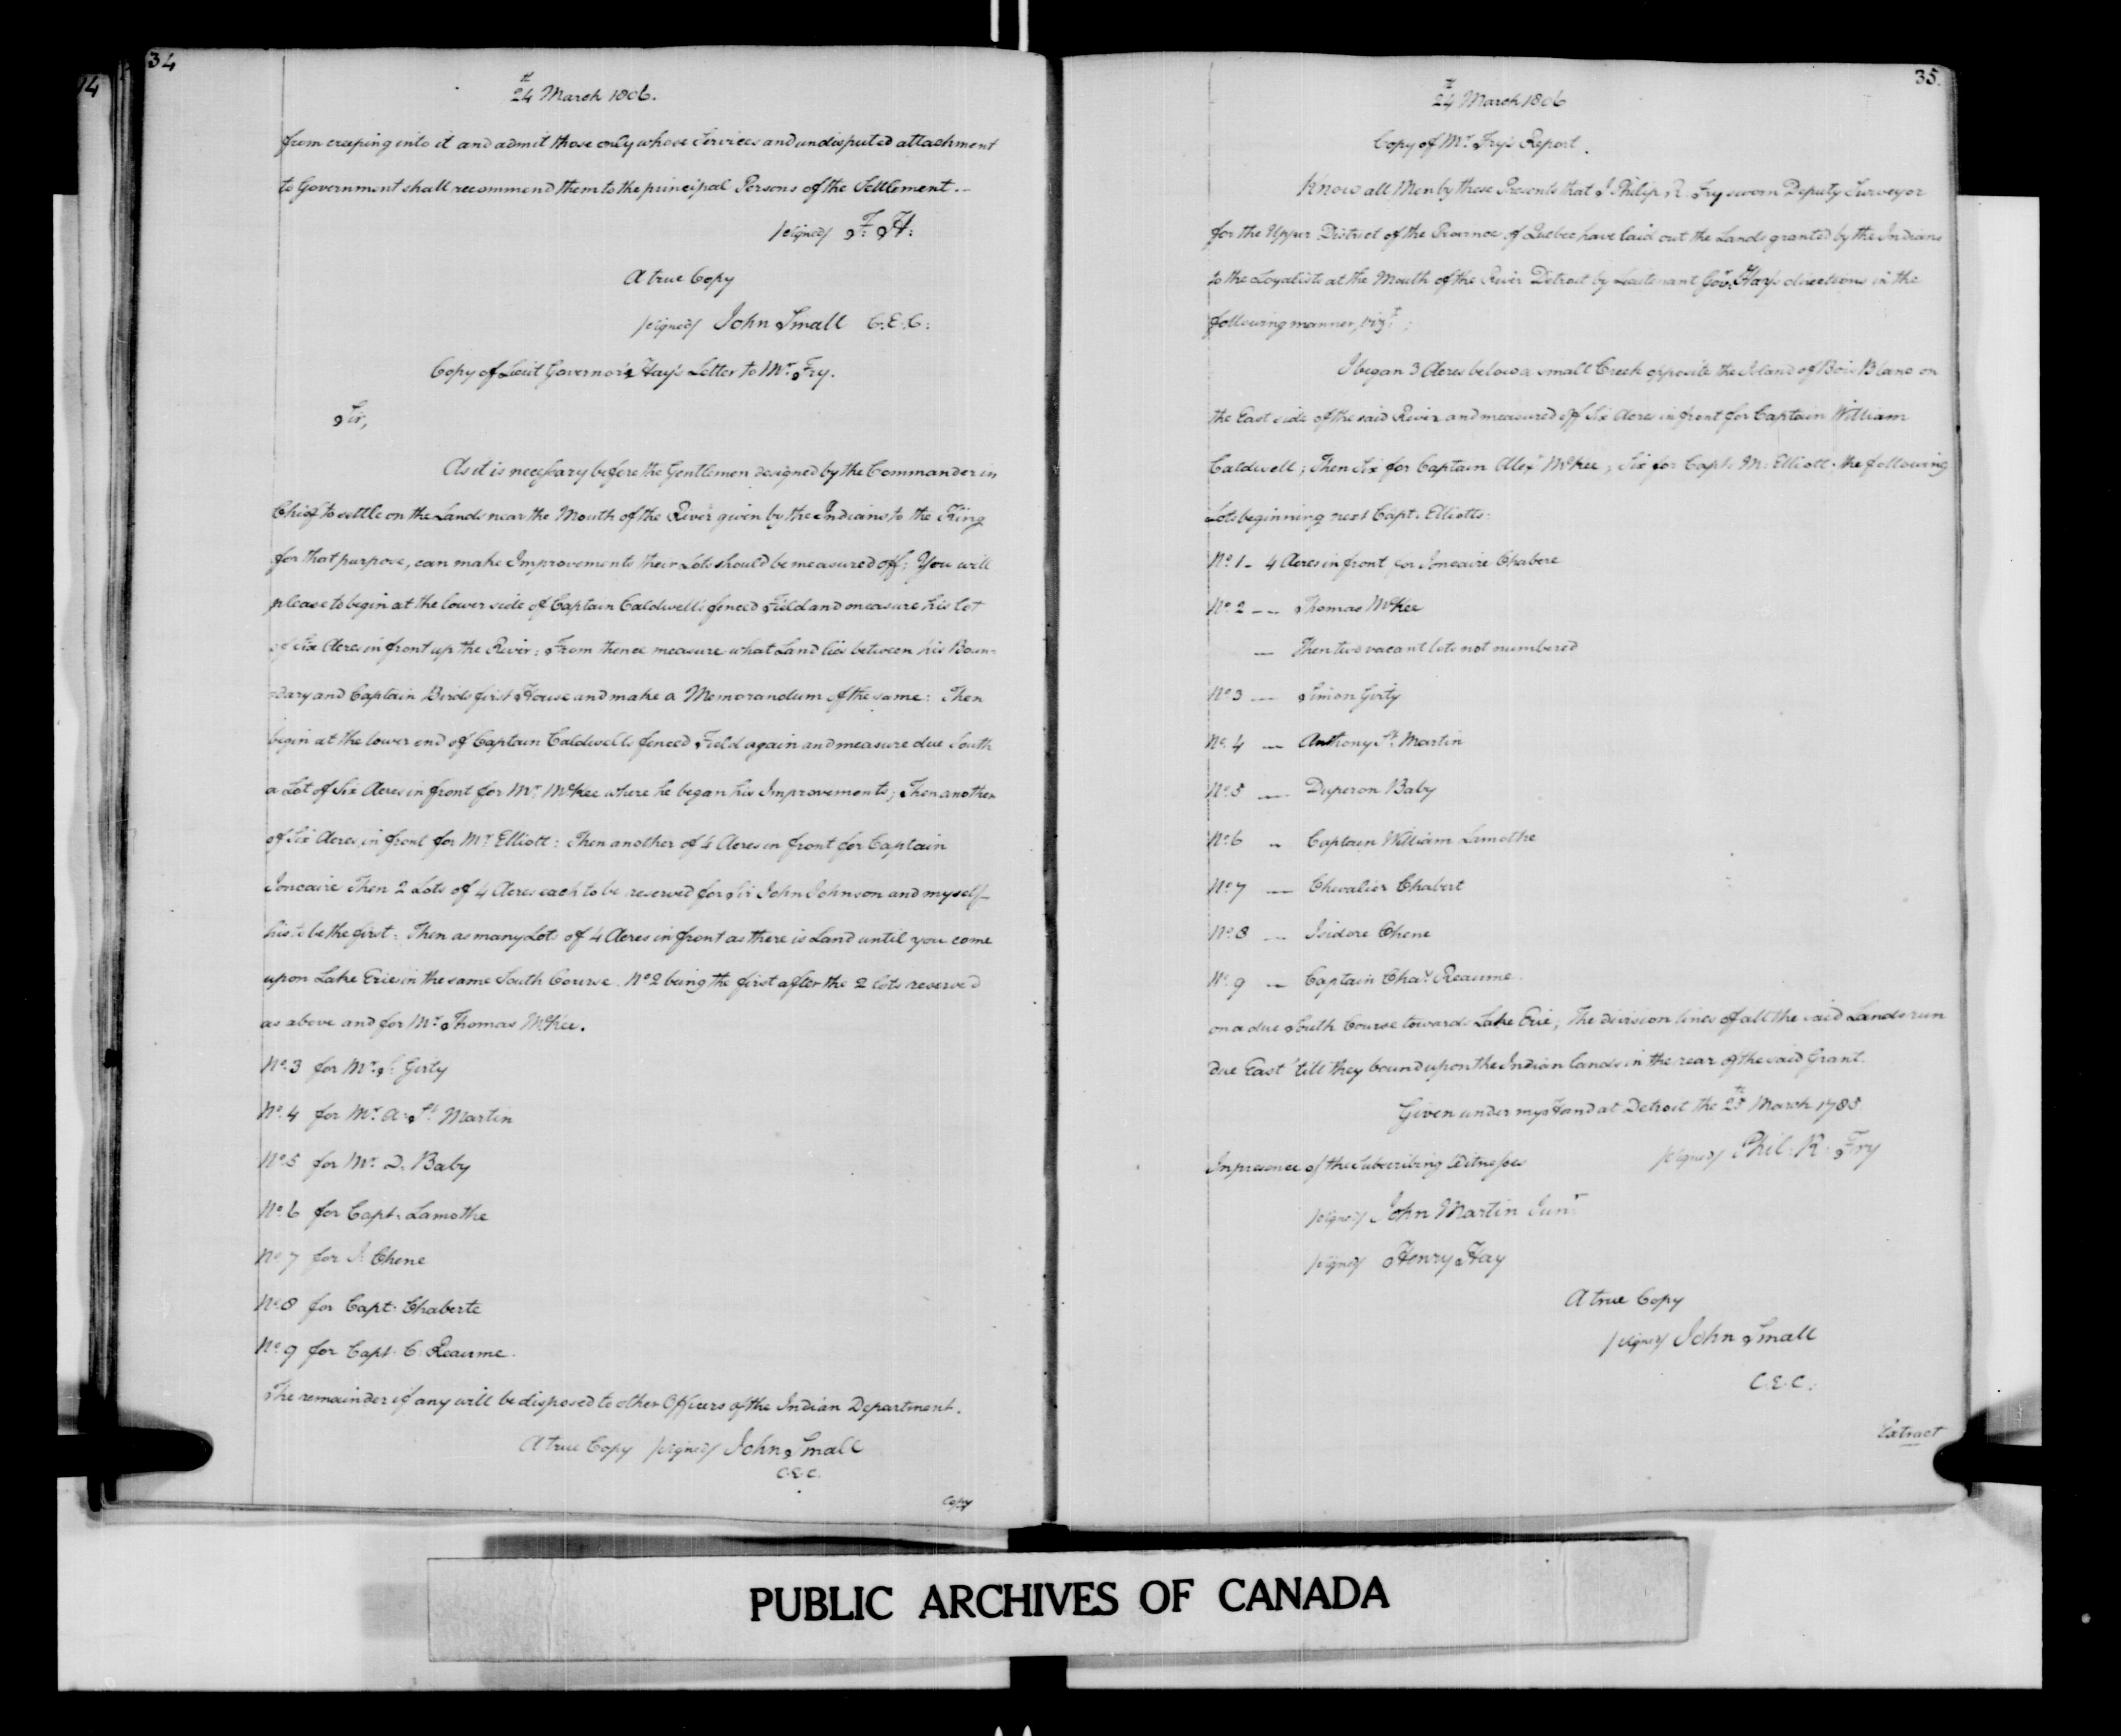 34
24th March 1806.
from creeping into it and admit those only whose Services and undisputed attachment
to Government shall recommend them to the principal Persons of the Settlement.—
/signed/ F: H:
A true Copy
/signed/ John Small C.E.C:
Copy of Lieut Governor Hay's Letter to Mr. Fry.
Sir,
As it is necessary before the Gentlemen designed by the Commander in
Chief to settle on the Lands near the Mouth of the River given by the Indians to the King
for that purpose, can make Improvements their Lots should be measured off: You will
please to begin at the lower side of Captain Caldwell's fenced Field and measure his Lot
of Six Acres in front up the River: From thence measure what Land lies between his Boun-
-dary and Captain Birds first House and make a Memorandum of the same: Then
begin at the lower end of Captain Caldwells fenced Field again and measure due South
a Lot of Six Acres in front for Mr. McKee where he began his Improvements; Then another
of Six Acres in front for Mr. Elliott: Then another of 4 Acres in front for Captain
Joncaire Then 2 Lots of 4 Acres each to be reserved for Sir John Johnson and myself—
his to be the first: Then as many Lots of 4 Acres in front as there is Land until you come
upon Lake Erie in the same South Course. No. 2 being the first after the 2 lots reserved
as above and for Mr. Thomas McKee.
No. 3 for Mr. S. Girty
No. 4 for Mr. A: St. Martin
No. 5 for Mr. D. Baby
No. 6 for Capt. Lamothe
No. 7 for I. Chene
No. 8 for Capt. Chaberte
No. 9 for Capt. C. Reaume.
The remainder if any will be disposed to other Officers of the Indian Department.
A true Copy /signed/ John Small
C.E.C.
Copy
35.
24th March 1806
Copy of Mr. Fry's Report.
Know all Men by these Presents that I Philip R. Fry sworn Deputy Surveyor
for the Upper District of the Province of Quebec have laid out the Lands granted by the Indians
to the Loyalists at the Mouth of the River Detroit by Lieutenant Govr. Hay's directions in the
following manner, vizt:
I began 3 Acres below a small Creek opposite the Island of Bois Blanc on
the East side of the said River and measured off Six Acres in front for Captain William
Caldwell; Then Six for Captain Alexr McKee; Six for Capt. M: Elliott; the following
Lots beginning next Capt. Elliotts:
No. 1 - 4 Acres in front for Joncaire Chabere
No. 2 — — Thomas McKee
— Then two vacant lots not numbered
No. 3 — Simon Girty
No. 4 — Anthony St. Martin
No. 5 — Duperon Baby
No. 6 — Captain William Lamothe
No. 7 — Chevalier Chabert
No. 8 — Isidore Chene
No. 9 — Captain Chas. Reaume.
on a due South Course towards Lake Erie; The division lines of all the said Lands run
due East 'till they bound upon the Indian lands in the rear of the said Grant.
Given under my Hand at Detroit the 25th March 1785
In presence of the Subscribing Witnesses /signed/ Phil. R. Fry
/signed/ John Martin Junr
/signed/ Henry Hay
A true Copy
/signed/ John Small
C.E.C.
Extract
PUBLIC ARCHIVES OF CANADA